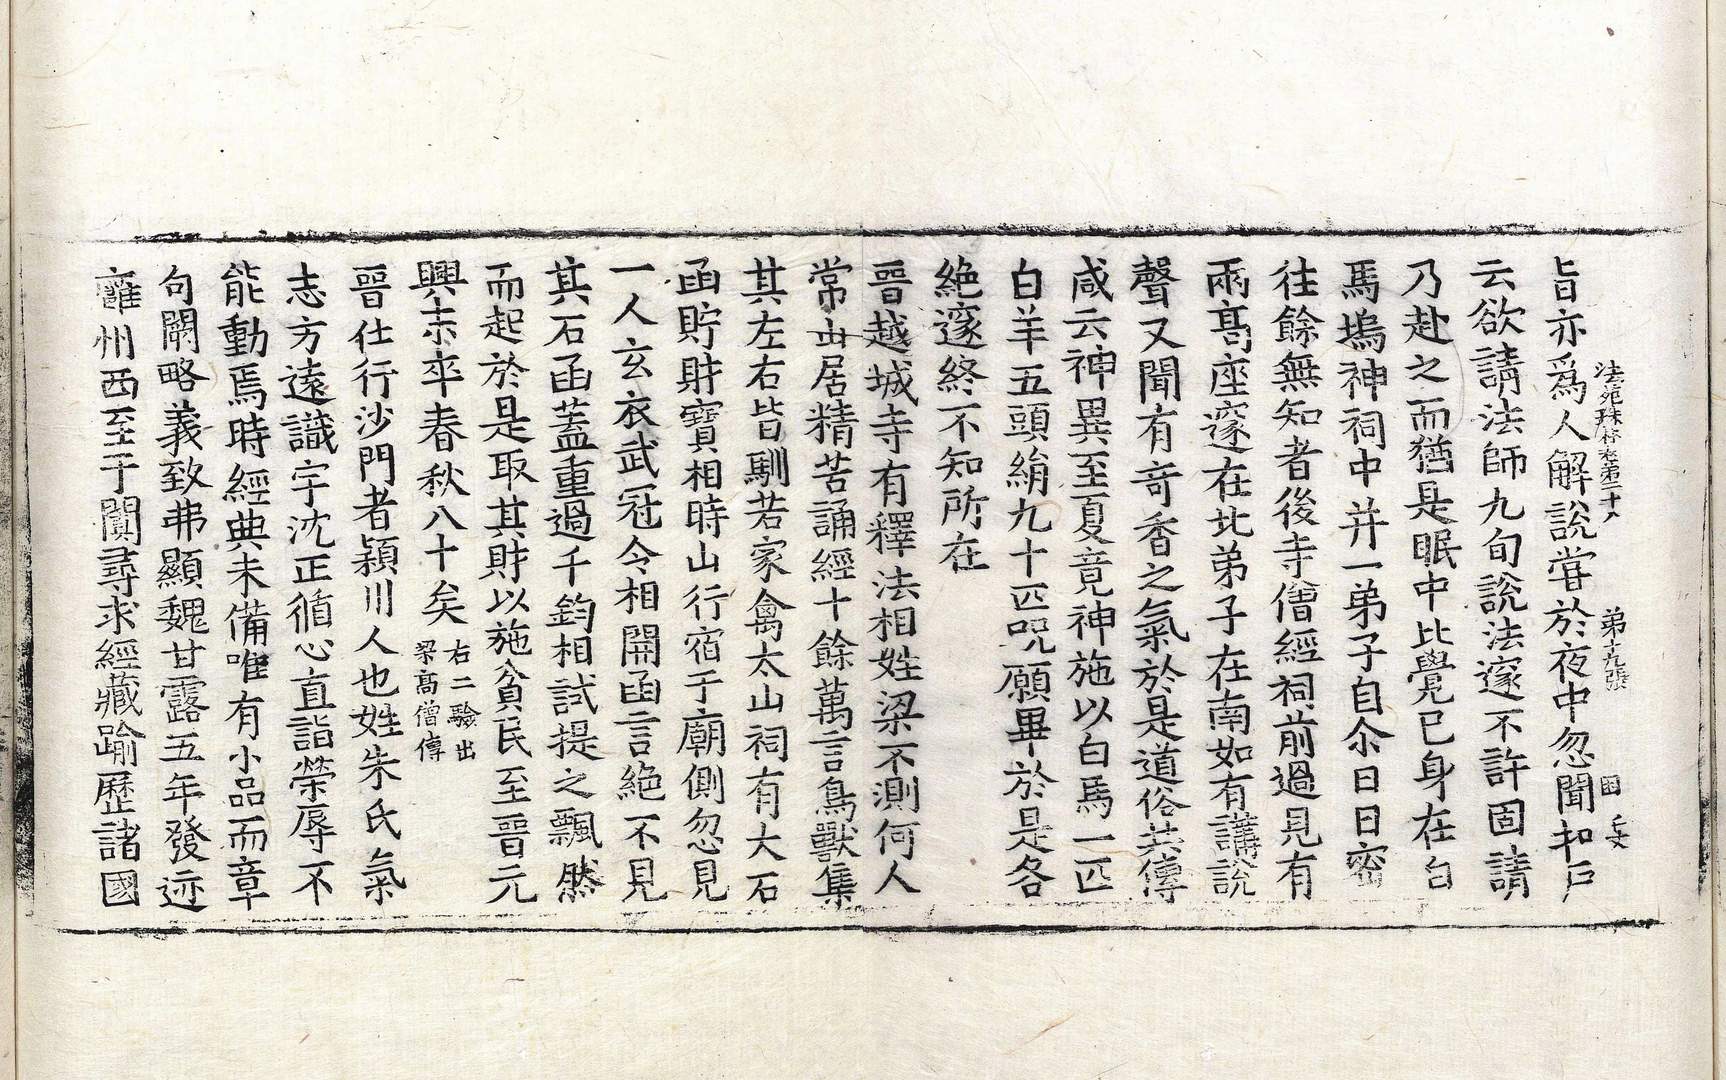 法苑珠林卷第二十八 第十九張 困
旨亦爲人解說甞於夜中忽聞扣戶
云欲請法師九旬說法邃不許固請
乃赴之而猶是眠中比覺已身在白
馬塢神祠中并一弟子自尒日日密
往餘無知者後寺僧經祠前過見有
兩髙座邃在北弟子在南如有講說
聲又聞有奇香之氣於是道俗共傳
咸云神異至夏竟神施以白馬一匹
白羊五頭絹九十匹呪願畢於是各
絕邃終不知所在
晉越城寺有釋法相姓梁不測何人
常山居精苦誦經十餘萬言鳥獸集
其左右皆馴若家禽太山祠有大石
函貯財寶相時山行宿于廟側忽見
一人玄衣武冠令相開函言絕不見
其石函蓋重過千鈞相試提之飄然
而起於是取其財以施貧民至晉元
興末卒春秋八十矣 右二驗出梁髙僧傳
晉仕行沙門者潁川人也姓朱氏氣
志方遠識宇沈正循心直詣榮辱不
能動焉時經典未備唯有小品而章
句闕略義致弗顯魏甘露五年發迹
雍州西至于闐尋求經藏踰歷諸國